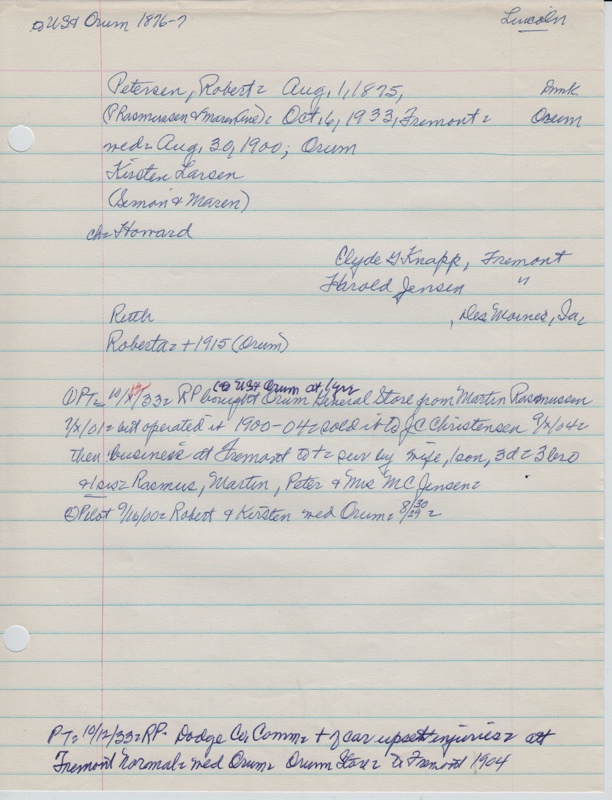 to USA Orum 1876-7 Lincoln
Petersen, Robert = Aug, 1, 1875, Dmk
(P Rasmussen & Maren Line) = Oct, 6, 1933, Fremont = Orum
wed = Aug, 30, 1900; Orum
Kirsten Larsen
(Simon & Maren)
ch = Howard
Clyde G Knapp, Fremont
Harold Jensen "
Ruth , Des Moines, Ia,
Roberta = + 1915 (Orum)
(to USA Orum at 1 yr
① PT = 10/12/33 = RP bought Orum General Store from Martin Rasmussen
7/X/01 = but operated it 1900-04 = sold it to J C Christensen 9/X/04 =
then business at Fremont to + = surv by wife, 1 son, 3 d = 3 bro
& 1 sis = Rasmus, Martin, Peter & Mrs M C Jensen =
② Pilot 9/16/00 = Robert & Kirsten wed Orum = 8/30 29 =
PT = 10/12/33 = RP = Dodge Co, Comm = + of car upset injuries = att
Fremont Normal = wed Orum = Orum Store = to Fremont 1904